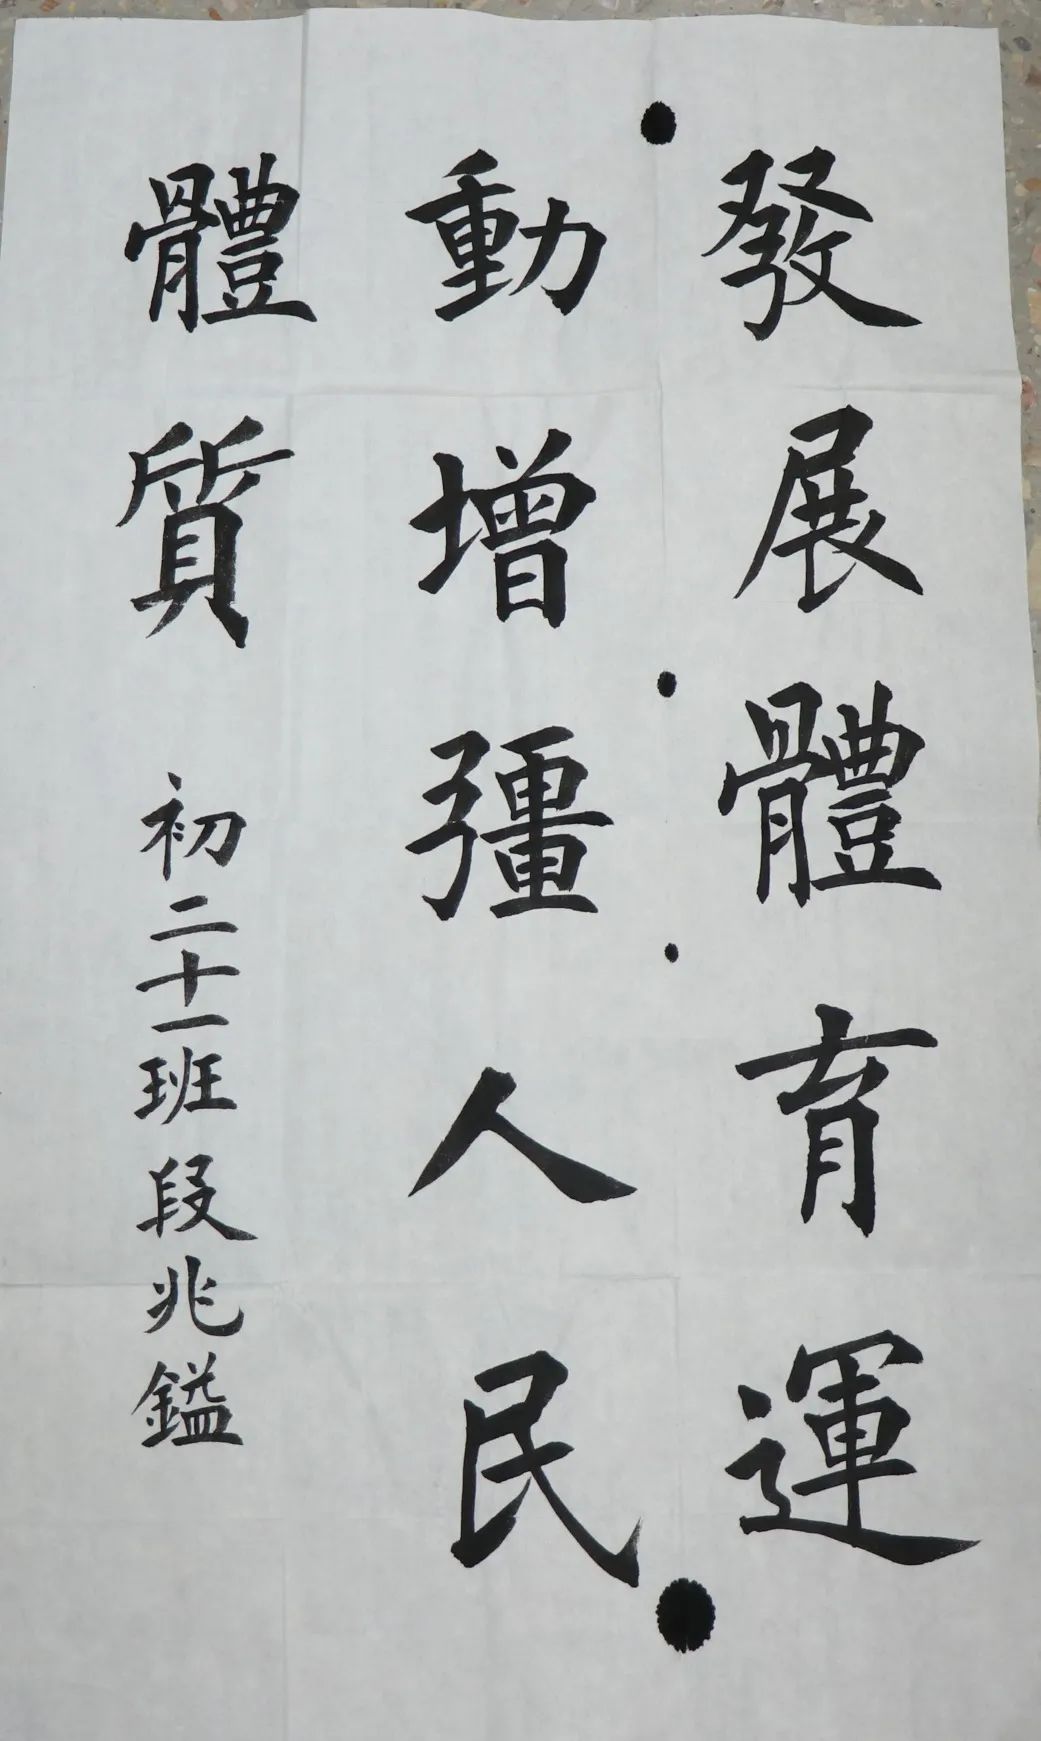 發展體育運
動增彊人民
體質
初二十一班段兆鎰